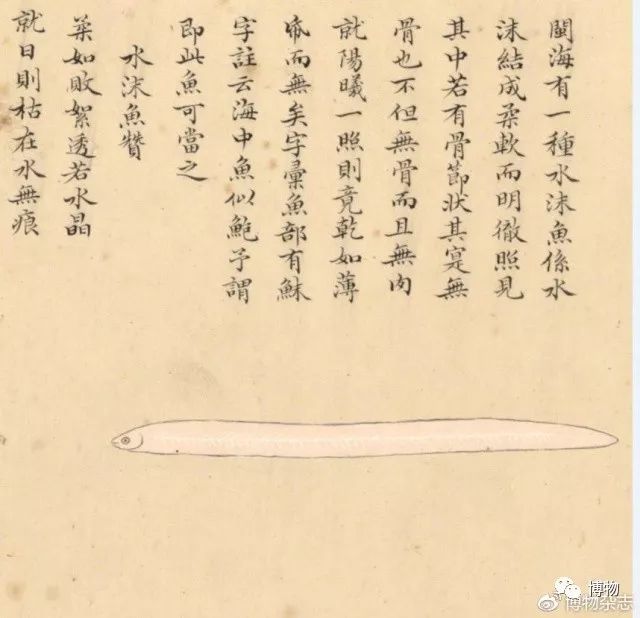 閩海有一種水沫魚係水
沫結成柔軟而明徹照見
其中若有骨節狀其寔無
骨也不但無骨而且無肉
就陽曦一照則竟乾如薄
帋而無矣字彙魚部有鮇
字註云海中魚似鮑予謂
即此魚可當之
水沫魚贊
柔如敗絮透若水晶
就日則枯在水無痕
博物
博物杂志